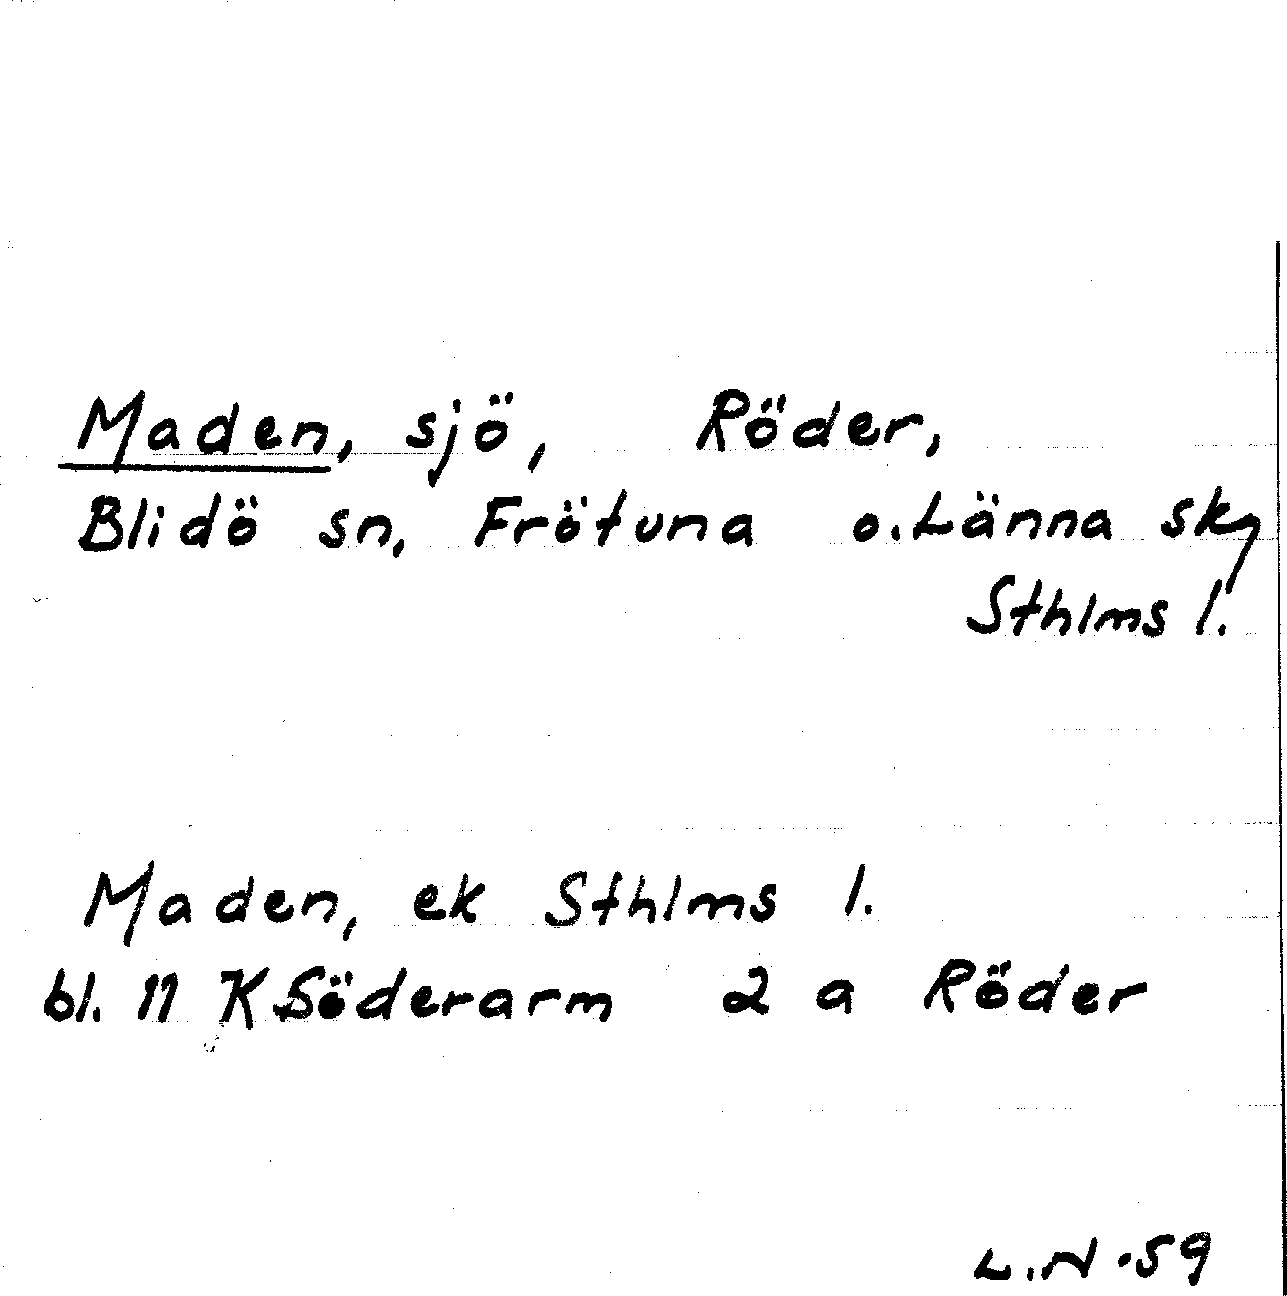 Maden, sjö, Röder,
Blidö sn, Frötuna o. Länna sk,
Sthlms l.
Maden, ek Sthlms l.
bl. 11 K Söderarm 2 a Röder
L.N -59